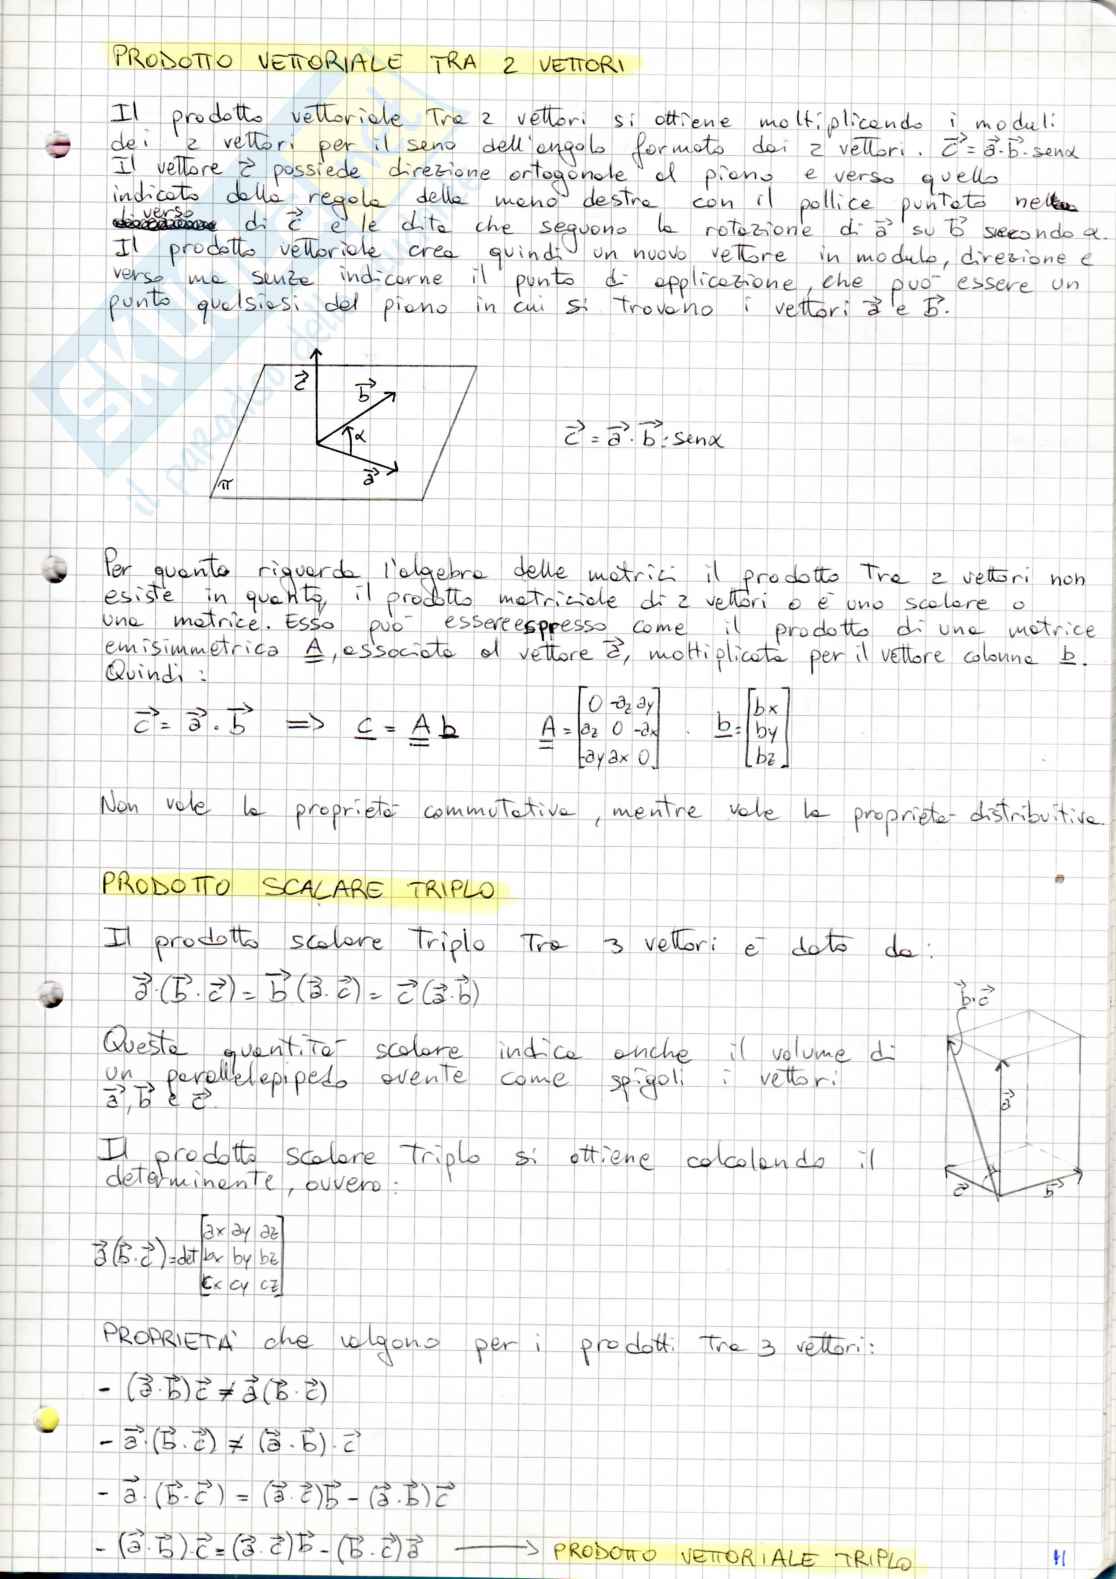 PRODOTTO VETTORIALE TRA 2 VETTORI
Il prodotto vettoriale tra 2 vettori si ottiene moltiplicando i moduli
dei 2 vettori per il seno dell'angolo formato dai 2 vettori. c⃗ = a⃗·b⃗·senα
Il vettore c⃗ possiede direzione ortogonale al piano e verso quello
indicato dalla regola della mano destra con il pollice puntato nel
verso di c⃗ e le dita che seguono la rotazione di a⃗ su b⃗ secondo α.
Il prodotto vettoriale crea quindi un nuovo vettore in modulo, direzione e
verso ma senza indicarne il punto di applicazione, che può essere un
punto qualsiasi del piano in cui si trovano i vettori a⃗ e b⃗.
c⃗ b⃗ α a⃗ π
c⃗ = a⃗·b⃗·senα
Per quanto riguarda l'algebra delle matrici il prodotto tra 2 vettori non
esiste in quanto, il prodotto matriciale di 2 vettori o è uno scalare o
una matrice. Esso può essere espresso come il prodotto di una matrice
emisimmetrica A, associata al vettore a⃗, moltiplicata per il vettore colonna b.
Quindi:
c⃗ = a⃗·b⃗ => c = A b A = [0 -az ay
az 0 -ax
-ay ax 0] · b = [bx
by
bz]
Non vale la proprietà commutativa, mentre vale la proprietà distributiva.
PRODOTTO SCALARE TRIPLO
Il prodotto scalare triplo tra 3 vettori è dato da:
a⃗·(b⃗·c⃗) = b⃗(a⃗·c⃗) = c⃗(a⃗·b⃗)
b⃗·c⃗
Questa quantità scalare indica anche il volume di
un parallelepipedo avente come spigoli i vettori
a⃗, b⃗ e c⃗.
a⃗
Il prodotto scalare triplo si ottiene calcolando il
determinante, ovvero:
c⃗ b⃗
a⃗(b⃗·c⃗) = det [ax ay az
bx by bz
cx cy cz]
PROPRIETÀ che valgono per i prodotti tra 3 vettori:
- (a⃗·b⃗)c⃗ ≠ a⃗(b⃗·c⃗)
- a⃗·(b⃗·c⃗) ≠ (a⃗·b⃗)·c⃗
- a⃗·(b⃗·c⃗) = (a⃗·c⃗)b⃗ - (a⃗·b⃗)c⃗
- (a⃗·b⃗)·c⃗ = (a⃗·c⃗)b⃗ - (b⃗·c⃗)a⃗ ⟶ PRODOTTO VETTORIALE TRIPLO
11